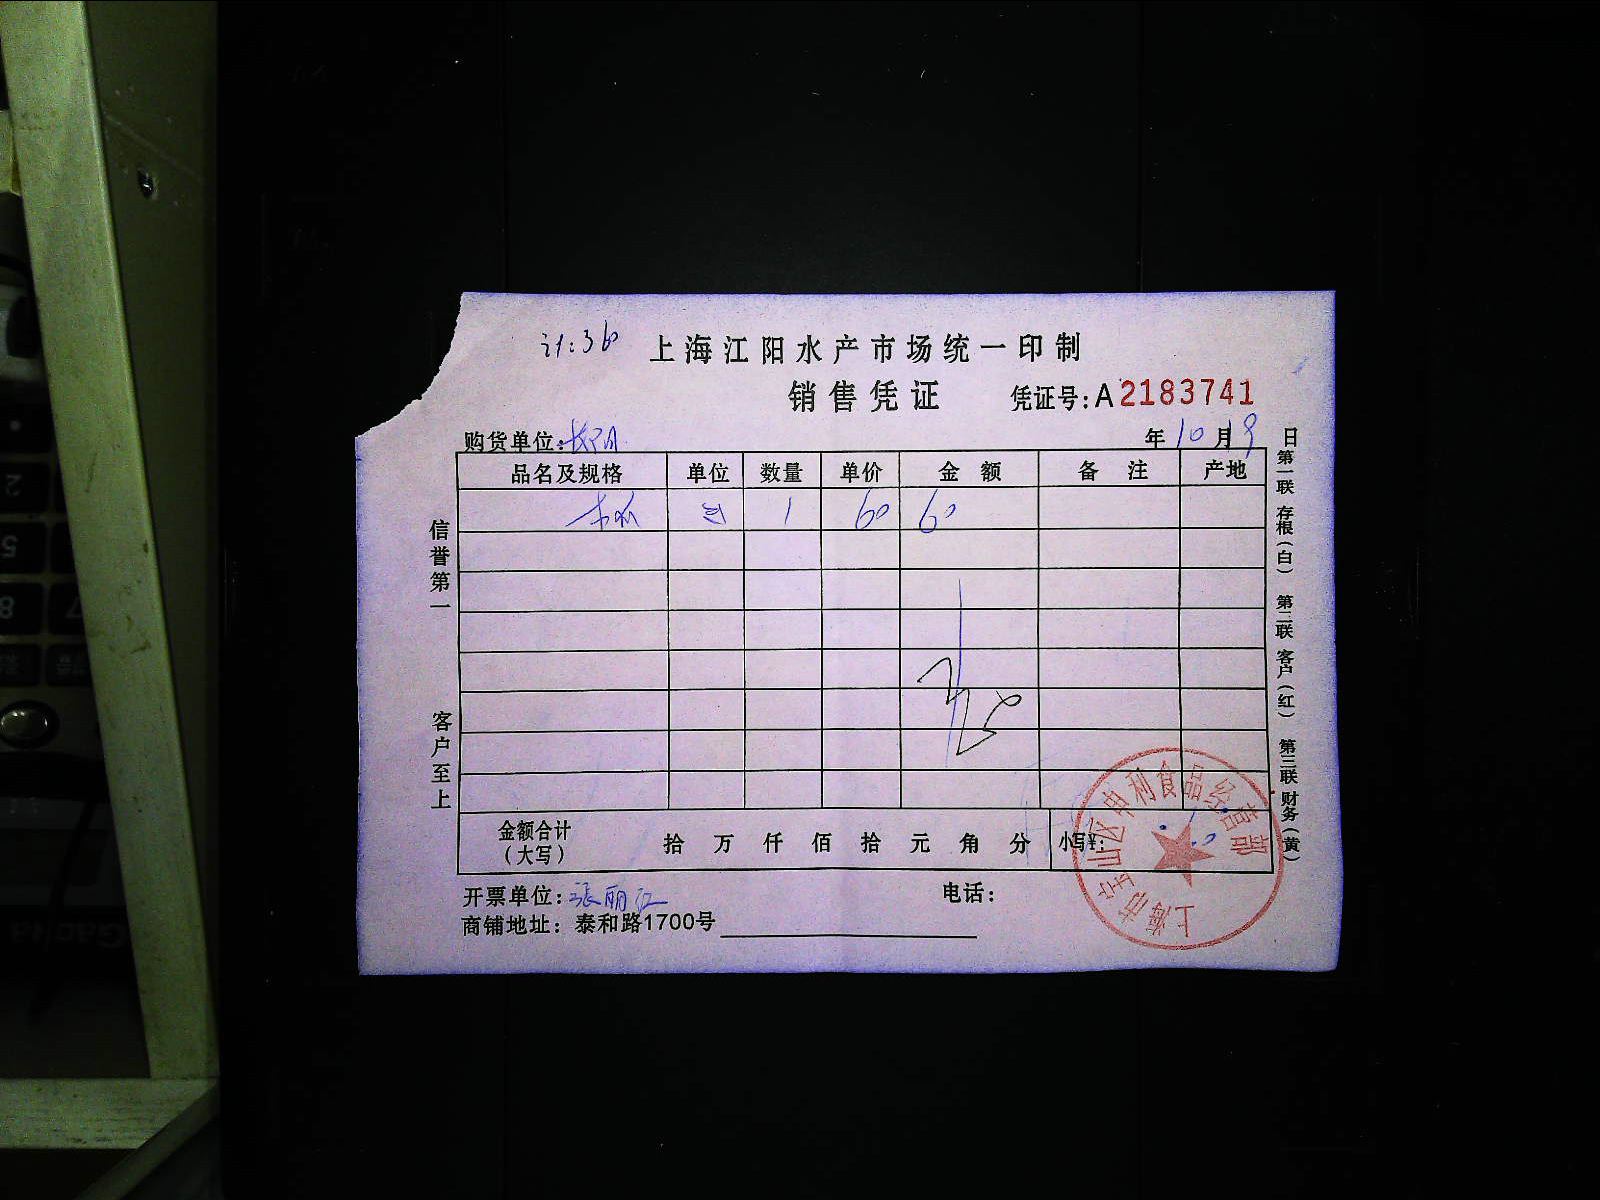 上海江阳水产市场统一印制
销售凭证 凭证号:A2183741
购货单位: 年10月19日
品名及规格 单位 数量 单价 金额 备注 产地
1 60 60
信誉第一
客户至上
第一联 存根(白) 第二联 客户(红) 第三联 财务(黄)
金额合计(大写) 拾 万 仟 佰 拾 元 角 分 小写¥:
开票单位:张丽江 电话:
商铺地址: 泰和路1700号
上海市宝山区申利食品经营部